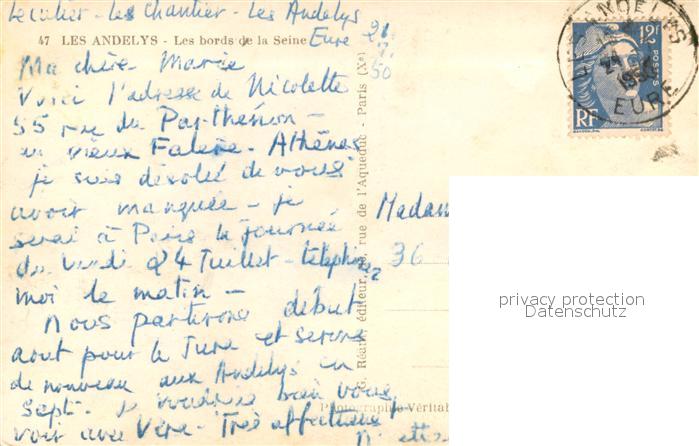 Le colier - Les Chantier - Les Andelys
47 LES ANDELYS - Les bords de la Seine
Eure
21
7
50
Ma chère Marie
Voici l'adresse de Nicolette
55 rue du Parthénon -
au vieux Falère - Athènes
je suis désolée de vous
avoir manquée - je
serai à Paris la journée
du lundi 24 Juillet - téléphonez
moi le matin -
Nous partirons début
aout pour le Jura et serons
de nouveau aux Andelys en
sept. Je voudrais bien vous
voir avec Véra - Très affectueuse
G. Réaux, éditeur, rue de l'Aqueduc - Paris (Xe)
Photographie Vérita
LES ANDELYS
24
EURE
12F
POSTES
RF
Madam
36
privacy protection
Datenschutz